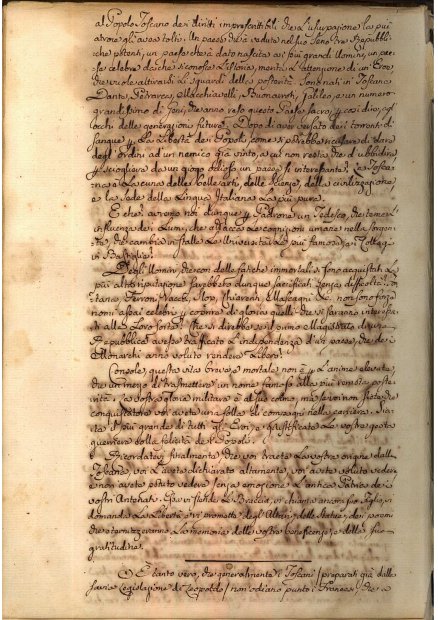 al Popolo Toscano dei diritti imprescrittibili, che l'usurpazione la più
atroce gli aveva tolti. Un paese che ha veduto nel suo seno tre Repubbli-
che potenti, un paese che ha dato nascita ai più grandi Uomini, un pae-
se celebre da che si conosce l'Istoria, merita l'attenzione di un Eroe
che vuole attirarsi li sguardi della posterità. Sono nati in Toscana
Dante, Petrarca, Macchiavelli, Galileo, e un numero
grandissimo di Geni, che anno reso questo Paese sacro, per così dire, agl'
occhi delle generazioni future. Dopo di aver versato dei torrenti di
sangue per la Libertà dei Popoli, come si potrebbe ricusare di dare
degl'ordini ad un nemico già vinto, a cui non resta che di ubbidire,
per sciogliere da un giogo odioso un paese sì interessante? La Tosca-
na è la cuna delle belle arti, delle scienze, della civilizzazione
e la sede della Lingua Italiana la più pura.
E che? avremo noi dunque per Padrone un Tedesco, che teme l'
influenza dei Lumi, che attacca le cognizioni umane nella sorgen-
te, che cambia in stalle le Università le più famose,
Degli Uomini, che con delle fatiche immortali si sono acquistati la
più alta riputazione sarebbero dunque sacrificati senza difficoltà.
Ferroni, Vacca, Mascagni &c. non sono forse
nomi assai celebri per coprire di gloria quelli che vi saranno interessa-
ti alla loro sorte? Che si direbbe se il primo Magistrato di una
Repubblica avesse trafficato l'indipendenza d'un paese, che dei
Monarchi anno voluto rendere libero?
Console, questa vita breve e mortale non è per l'anime elevate,
che un mezzo di trasmettere un nome famoso alla più remota poste-
rità. La vostra gloria militare è al suo colmo, ma se voi non siete che
conquistatore voi avete una folla di compagni nella carriera. Sia-
te il più grande di tutti gli Eroi, e giustificate le vostre gesta
guerriere colla felicità de' Popoli.
Ricordatevi finalmente che voi traete la vostra origine dalla
Toscana, voi l'avete dichiarato altamente, voi avete voluto vedere
e non avete potuto vedere senza emozione l'antica Patria dei
vostri Antenati. Essa vi stende le Braccia, vi chiama ancora suo Figlio, vi
domanda la Libertà e vi promette degl'Altari, delle Statue, dei poemi
che eternizzeranno la memoria delle vostre beneficenze, e della sua
gratitudine.
È tanto vero, che generalmente i Toscani (preparati già dalla
savia Legislazione di Leopoldo) non odiano punto i Francesi, che a